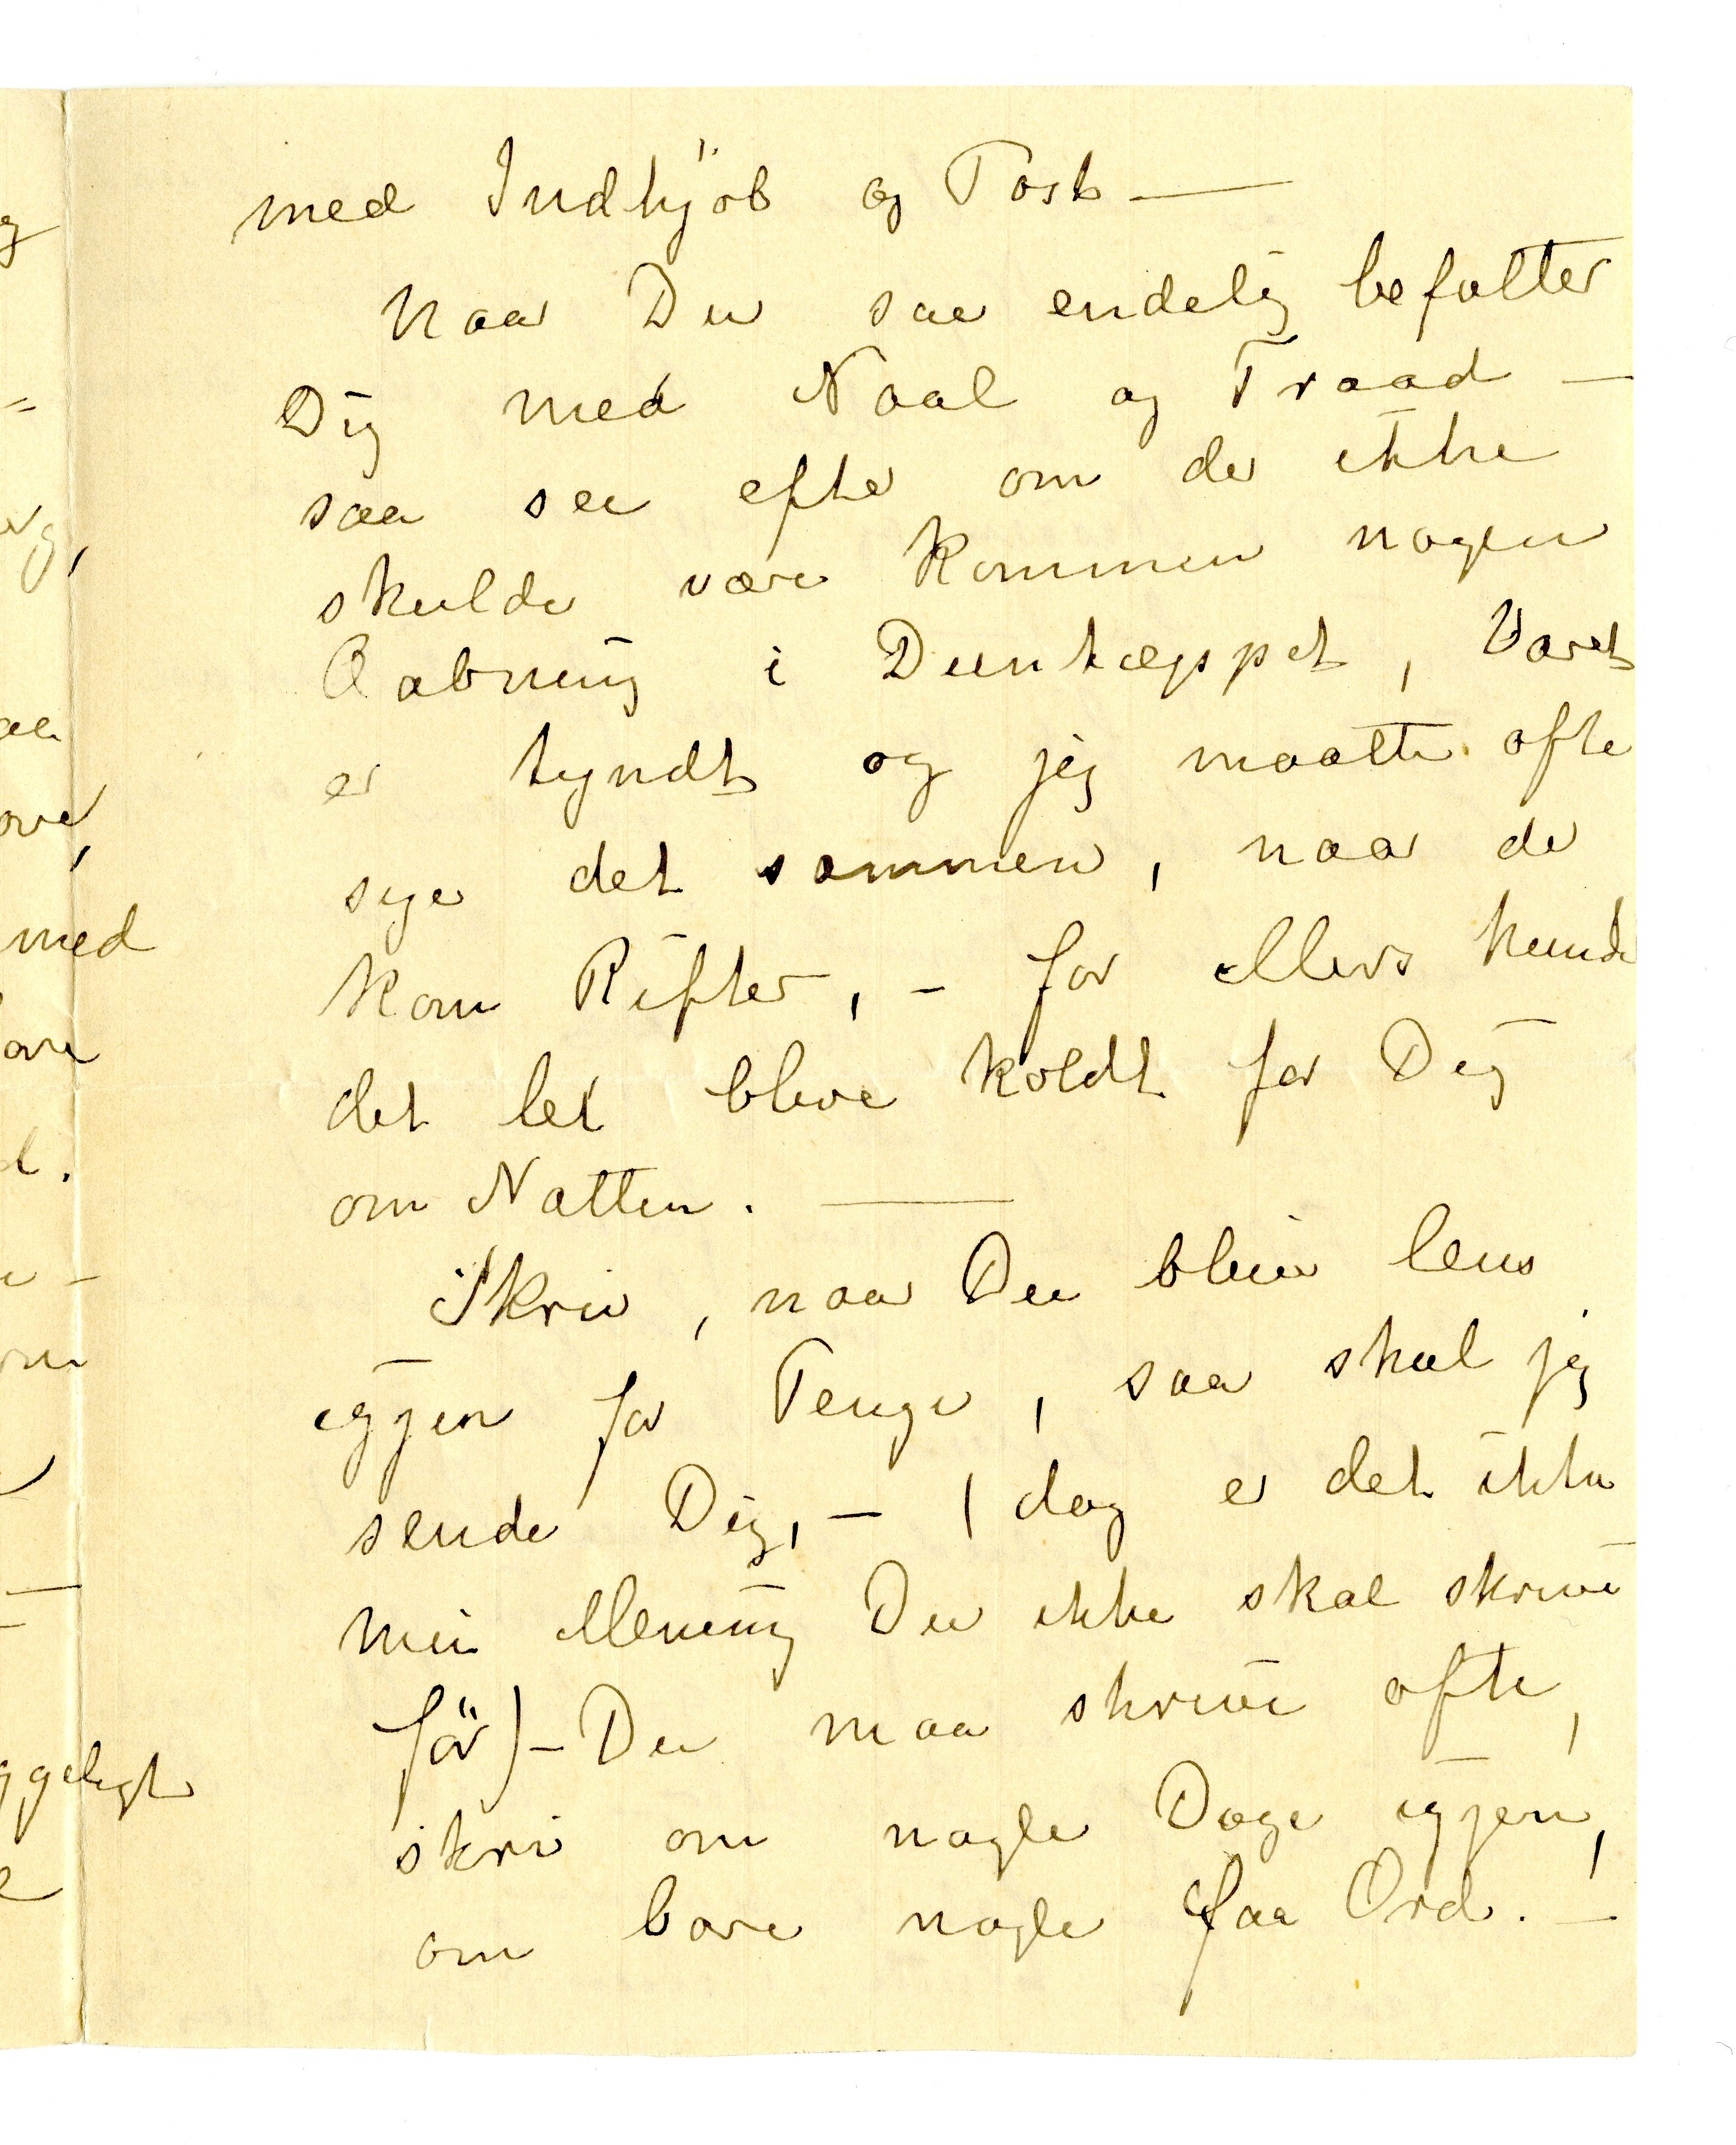 med Indkjöb og Post —
Naar Du saa endelig befatter
Dig med Naal og Traad —
saa see efter om der ikke
skulde være kommen nogen
Aabning i Duntæppet, Varet
er tyndt og jeg maatte ofte
sye det sammen, naar der
kom Rifter, – for ellers kunde
det let blive koldt for Dig
om Natten. —
Skriv, naar Du bliver lens
igjen for Penge, saa skal jeg
sende Dig, – (dog er det ikke
min Mening Du ikke skal skrive
för) – Du maa skrive ofte,
skriv om nogle Dage igjen,
om bare nogle faa Ord. —
med